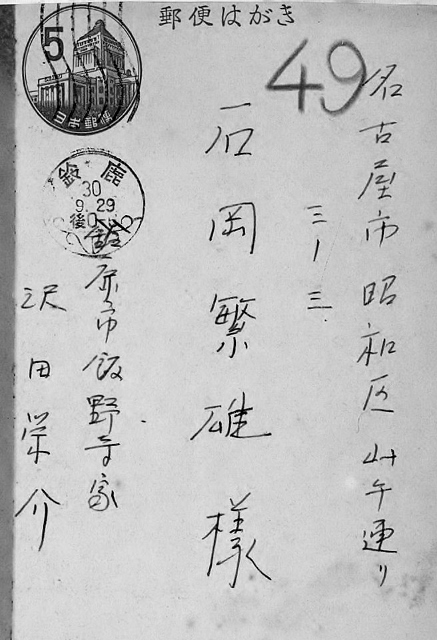 郵便はがき
5
日本郵便
49
名古屋市昭和区山手通り
三ー三
石岡繁雄様
鈴鹿
30
9.29
後0-
鈴鹿市飯野寺家
沢田栄介